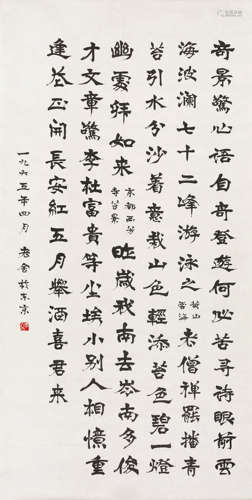 奇景驚心语自奇登遊何必苦尋诗眼前雲
海波瀾七十二峰游泳之黄山雲海老僧禅罷掃青
苔引水分沙著意栽山色輕添苔色碧一燈
幽處拜如来京都西芳寺苔景昨歲我南去岺南多俊
才文章驚李杜富貴等尘埃小别人相憶重
逢花正開長安紅五月舉酒喜君来
一九六五年四月 老舍 於东京